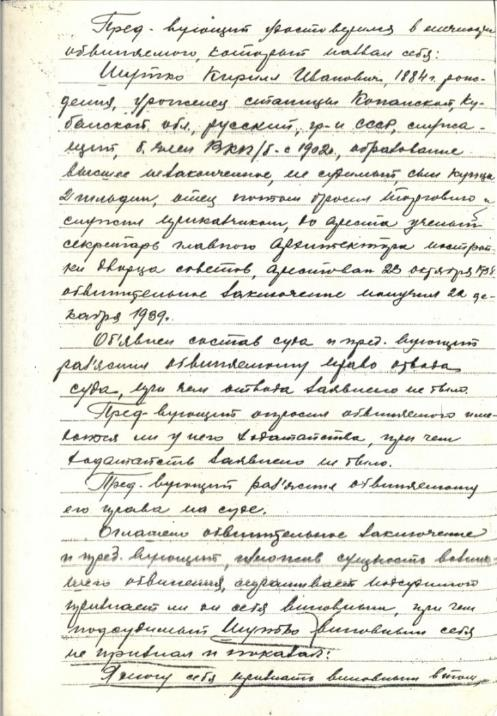 Пред-вующий удостоверился в личности
обвиняемого, который назвал себя:
Шутко Кирилл Иванович, 1884 г. рож-
дения, уроженец станицы Копанской, Ку-
банской обл., русский, гр-н СССР, служа-
щий, б. член ВКП/б. с 1902 г., образование
высшее незаконченное, не судимый, сын купца
2 гильдии, отец потом бросил торговлю и
служил приказчиком, до ареста ученый
секретарь главного архитектора построй-
ки дворца советов, арестован 23 октября 1938
обвинительное заключение получил 22 де-
кабря 1939.
Об'явлен состав суда и пред-вующий
раз'яснил обвиняемому право отвода
суда, при чем отвода заявлено не было.
Пред-вующий опросил обвиняемого име-
ются ли у него ходатайства, при чем
ходатайств заявлено не было.
Пред-вующий раз'яснил обвиняемому
его права на суде.
Оглашено обвинительное заключение
и пред-вующий, изложив сущность
обвинения, спрашивает подсудимого
признает ли он себя виновным, при чем
подсудимый Шутко виновным себя
не признал и показал:
Я могу себя признать виновным в том,